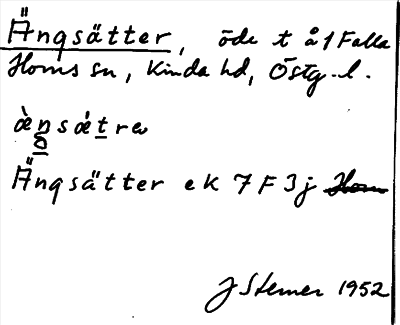 Ängsätter, öde t å 1 Falla
Horns sn, Kinda hd, Östg. l.
Ängsätter ek 7 F 3 j Horn
J Sterner 1952